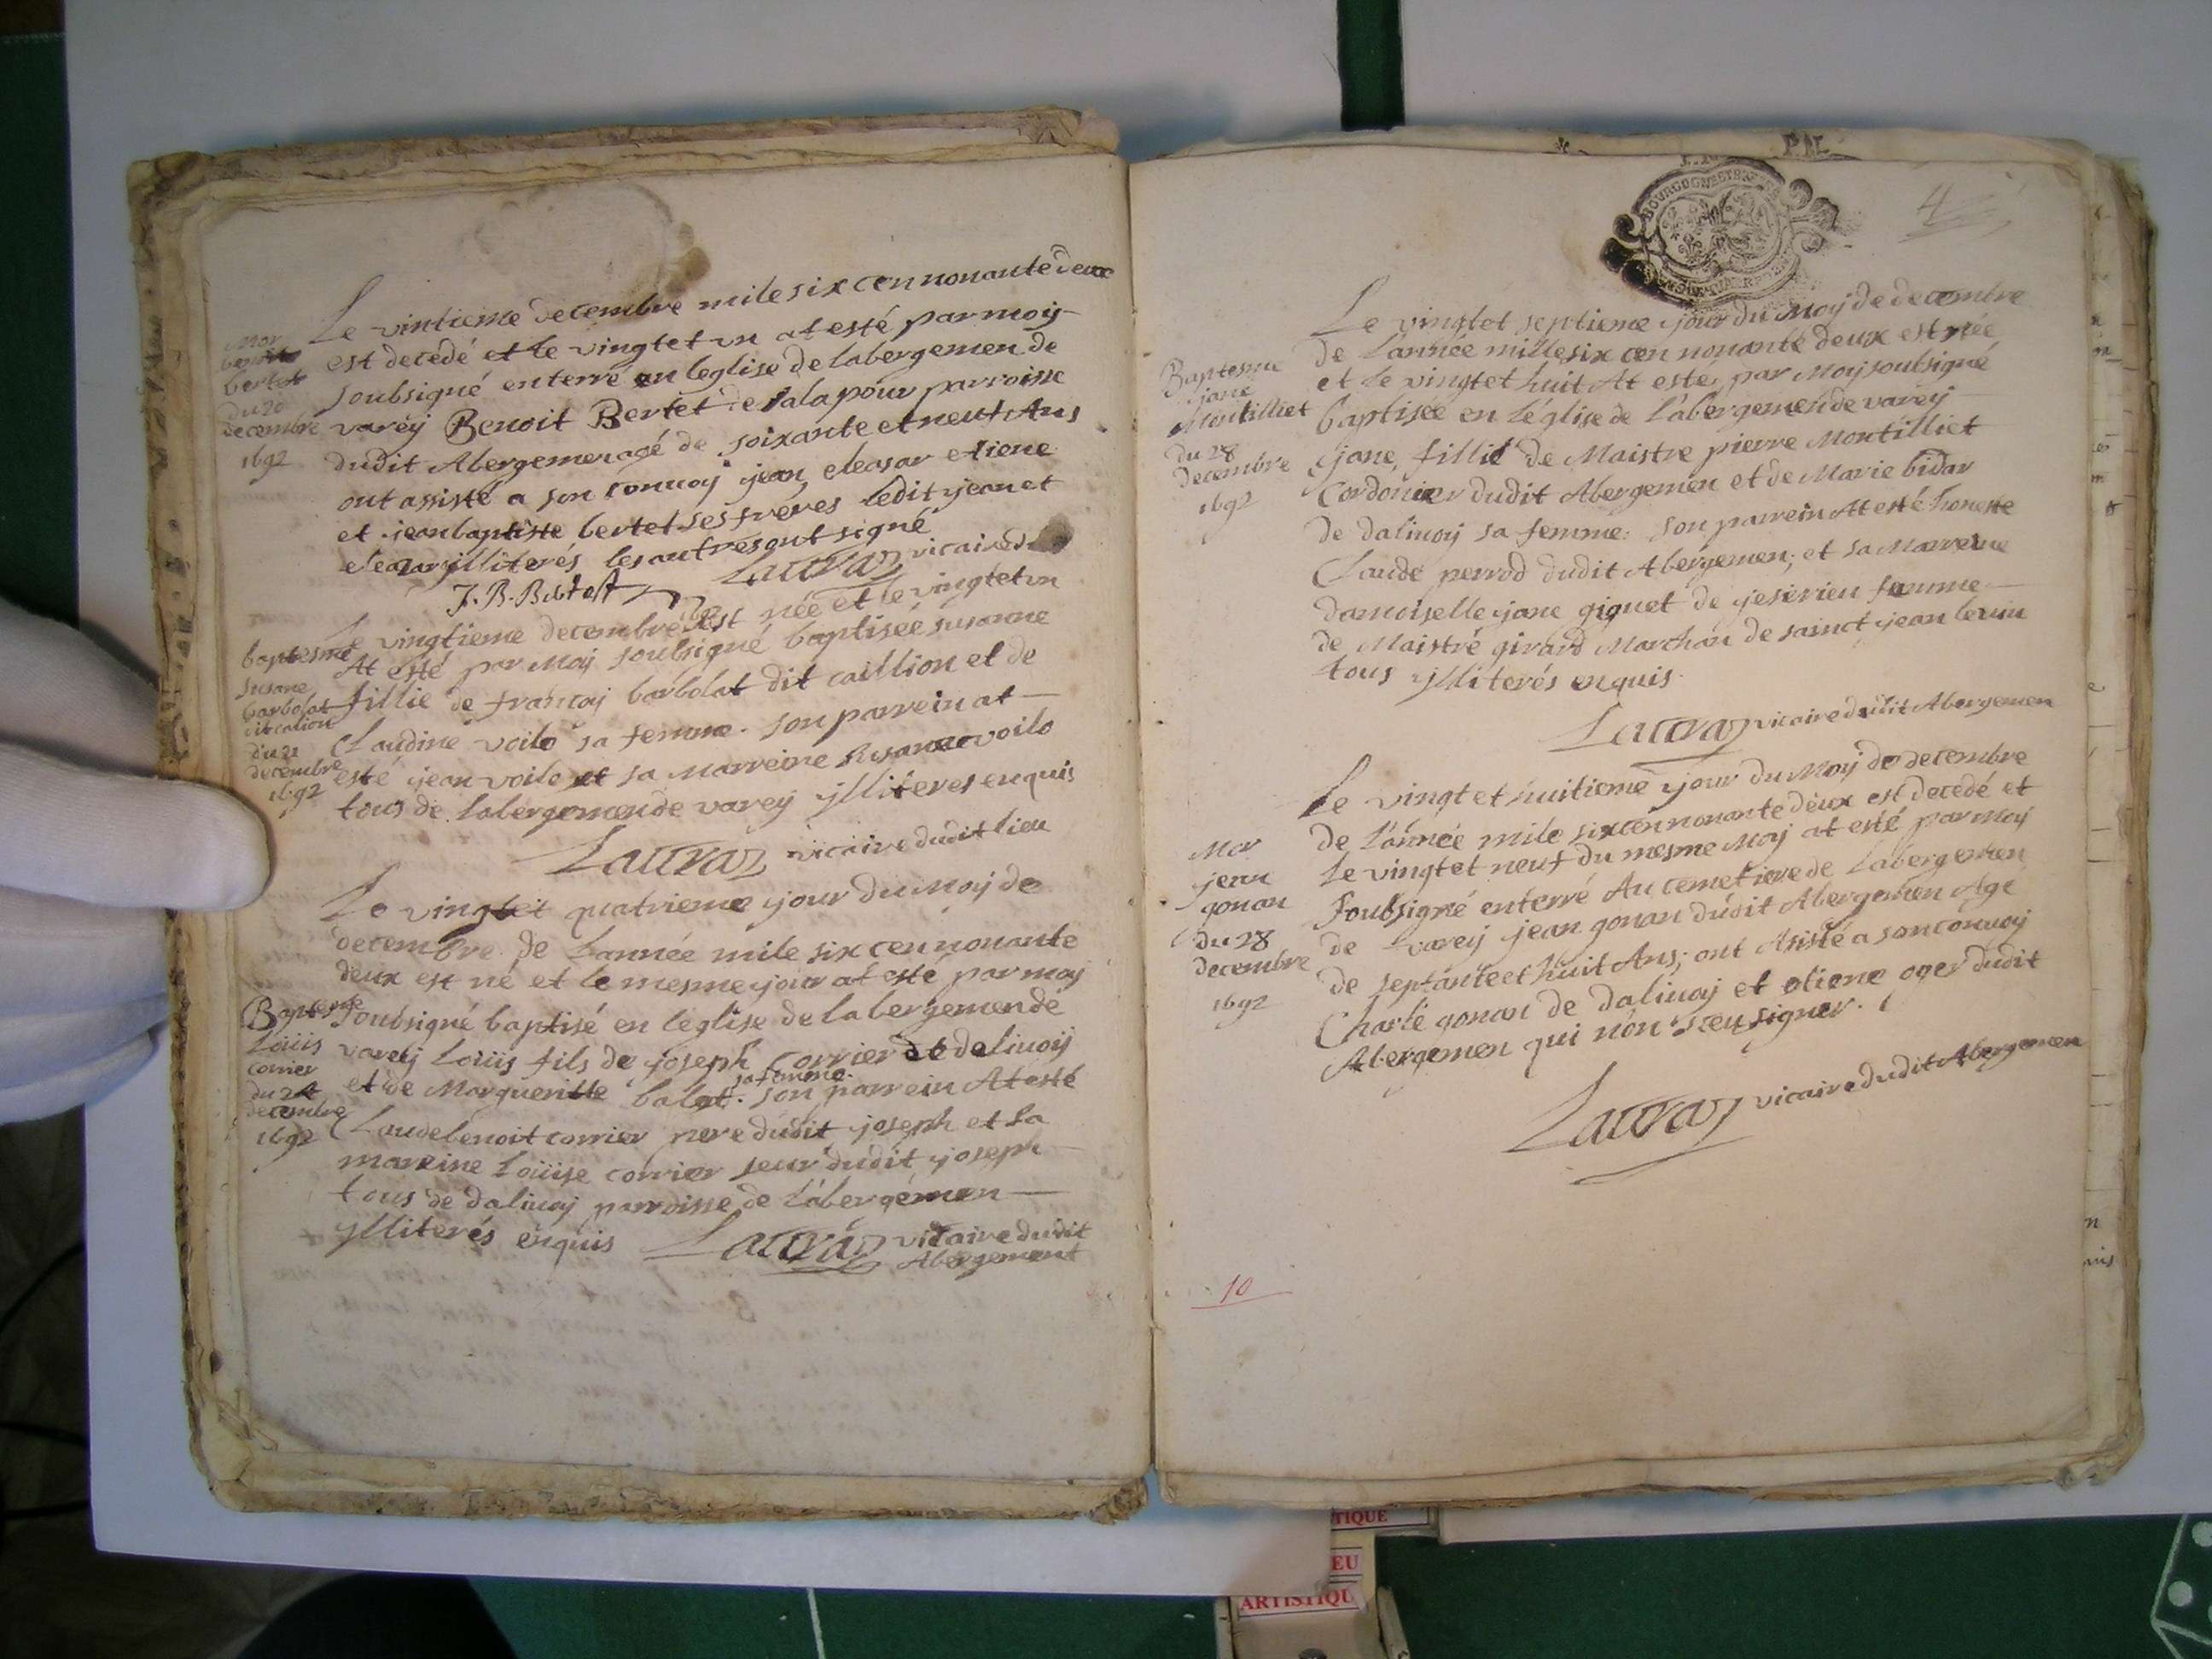 Le vintieme decembre mile six cen nonante deux
est decedé et le vingtet un at esté par moy
soubsigné enterré en leglise de labergemen de
varey Benoit Bertet de lala pour parroisse
dudit Abergemen agé de soixante et neuf Ans
ont assisté a son convoy jean eleasar etiene
et jean baptiste bertet ses freres ledit jean et
eleazar jlliterés les autres ont signé
Lauraz vicaire
J. B. Bertet
Mor
benoit
bertet
du 20
decembre
1692
Le vingtieme decembre est née et le vingtet un
At esté par Moy soubsigné baptisée susanne
fillie de francoy barbolat dit caillion et de
Claudine voilo sa femme. son parrein at
esté jean voilo et sa Marreine susanne voilo
tous de labergemen de varey jlliteres enquis
Lauraz vicaire dudit lieu
baptesme
susane
barbolat
dit calion
du 21
decembre
1692
Le vingtet quatrieme jour du Moy de
decembre de Lannée mile six cen nonante
deux est né et le mesme jour at esté par moy
soubsigné baptisé en leglise de labergemen de
varey Loüis fils de joseph corrier de dalivoy
et de Margueritte balet sa femme. son parrein At esté
Claude benoit corrier pere dudit joseph et sa
mareine Loüise corrier seur dudit joseph
tous de dalivoy parroisse de L'abergémen
jlliterés enquis Lauraz vicaire dudit
Abergement
Baptesme
Loüis
corrier
du 24
decembre
1692
P.M.
BOURGOGNE ET BRESSE
4
Le vingtet septieme jour du Moy de decembre
de L'année mille six cen nonante deux est née
et le vingtet huit At esté par Moy soubsigné
baptisée en L'église de L'abergemen de varey
jane fillie de Maistre pierre Montilliet
Cordonier dudit Abergemen et de Marie bidar
de dalivoy sa femme. son parrein At esté honeste
Claude perrod dudit Abergemen; et sa Marreine
damoiselle jane giguet de jeserieu femme
de Maistre girard Marchan de sainct jean le vieu
tous jlliterés enquis.
Lauraz vicaire dudit Abergemen
Baptesme
jane
Montilliet
du 28
decembre
1692
Le vingt et huitieme jour du Moy de decembre
de L'année mile six cen nonante deux est decedé et
Le vingtet neuf du mesme Moy at esté par Moy
soubsigné enterré Au cemetiere de Labergemen
de varey jean gonan dudit Abergemen Agé
de septante et huit Ans; ont Asisté a son convoy
Charle gonan de dalivoy et etiene oger dudit
Abergemen qui n'on sceu signer.
Lauraz vicaire dudit Abergemen
Mor
jean
gonan
du 28
decembre
1692
10
TIQUE
EU
ARTISTIQU